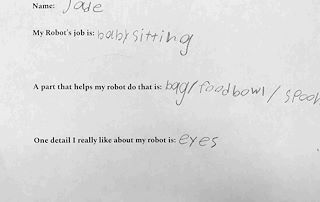 Name: Jade
My Robot's job is: babysitting
A part that helps my robot do that is: bag/foodbowl/spoon
One detail I really like about my robot is: eyes